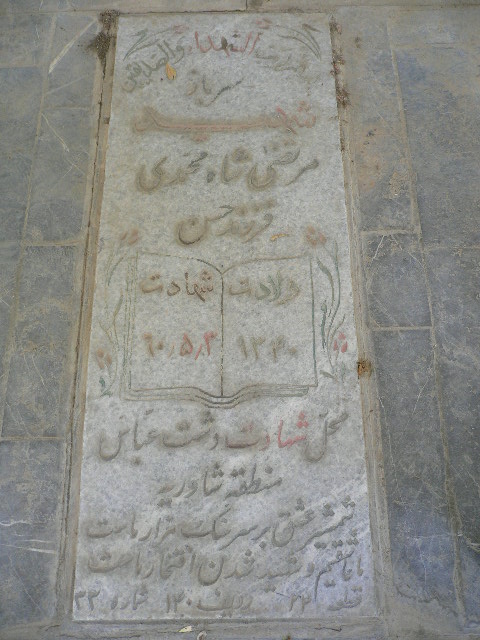 بسم رب الشهداء والصدیقین
سرباز
شهید
مرتضی شاه محمدی
فرزند حسن
ولادت شهادت
۱۳۴۰ ۶۰٫۵٫۳
محل شهادت دشت عباس
منطقه شاوریه
شمشیر عشق بر سر سنگ مزار ماست
ما عاشقیم و شهید شدن افتخار ماست
قطعه ۲۴ ردیف ۱۲۰ شماره ۲۳